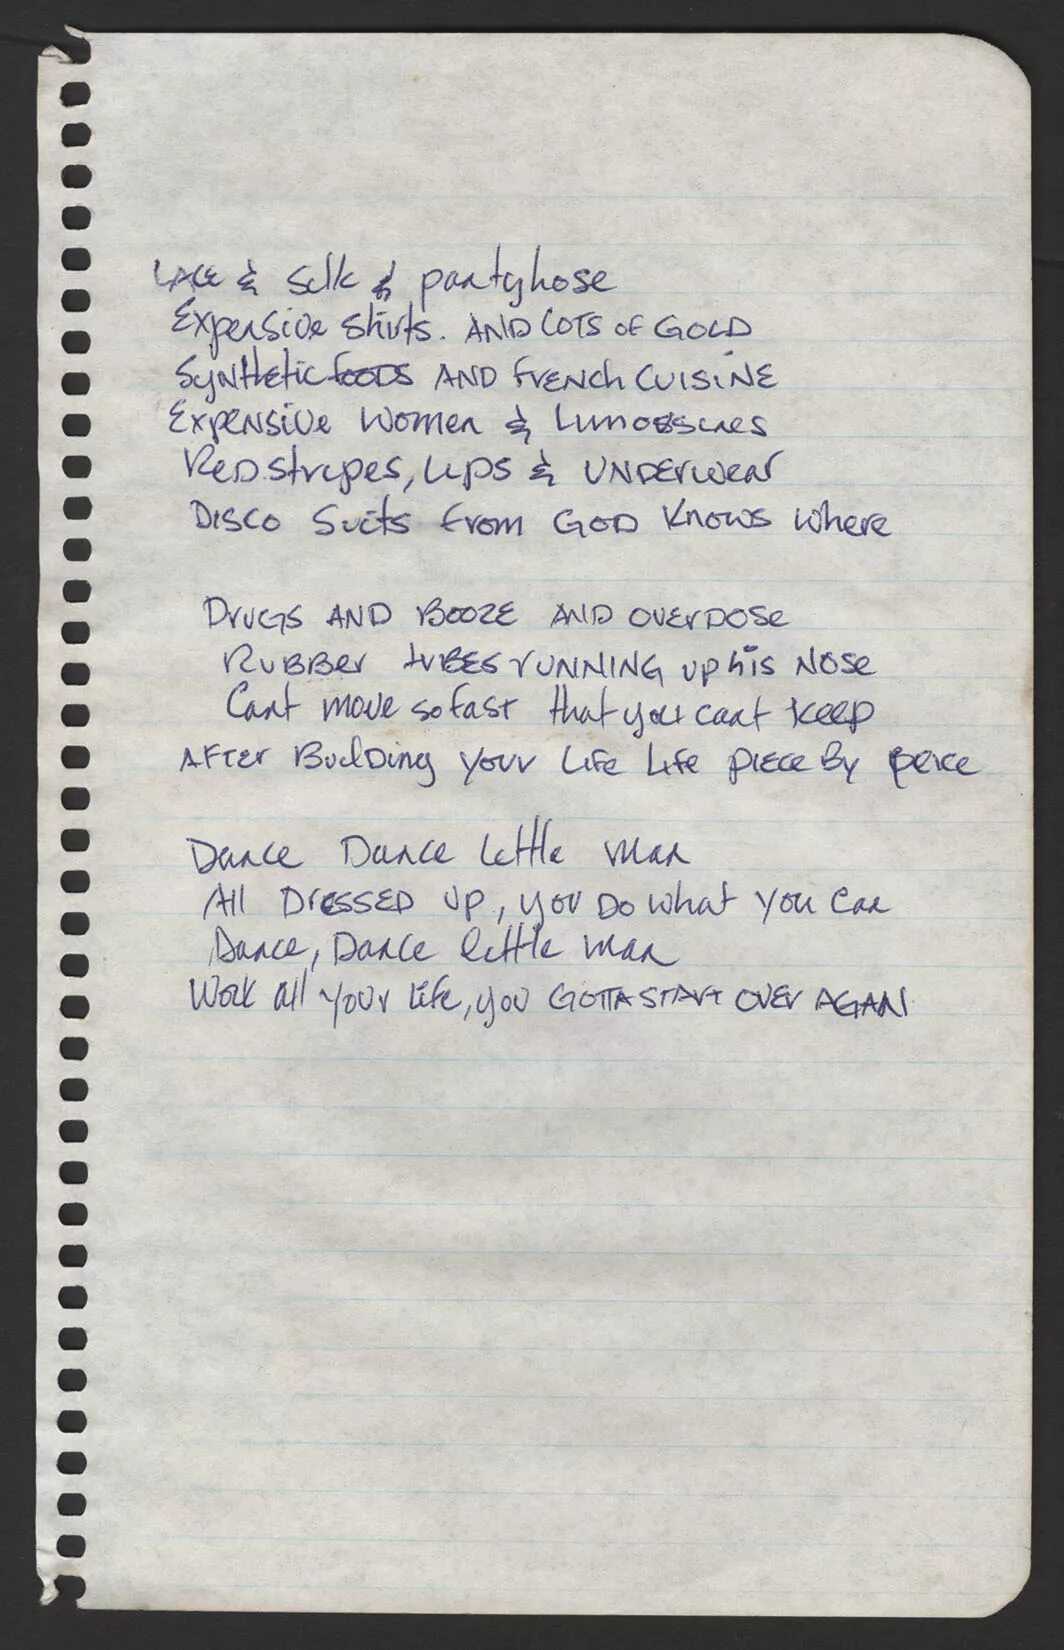 LACE & Silk & pantyhose
Expensive shirts. AND LOTS OF GOLD
SYNthetic FOODS AND French CUISINE
Expensive Women &
Red stripes, Lips & UNDERWEAR
DISCO Suits From GOD Knows where
Drugs AND BOOZE AND OVERDOSE
RUBBER tUBES rUNNING up his NOSE
Cant move so fast that you cant keep
AFTER BuilDing your Life Life piece By peice
Dance Dance Little man
All DRESSED UP, you Do what you Can
Dance, Dance little man
Work all your life, you GOTTA START OVER AGAN